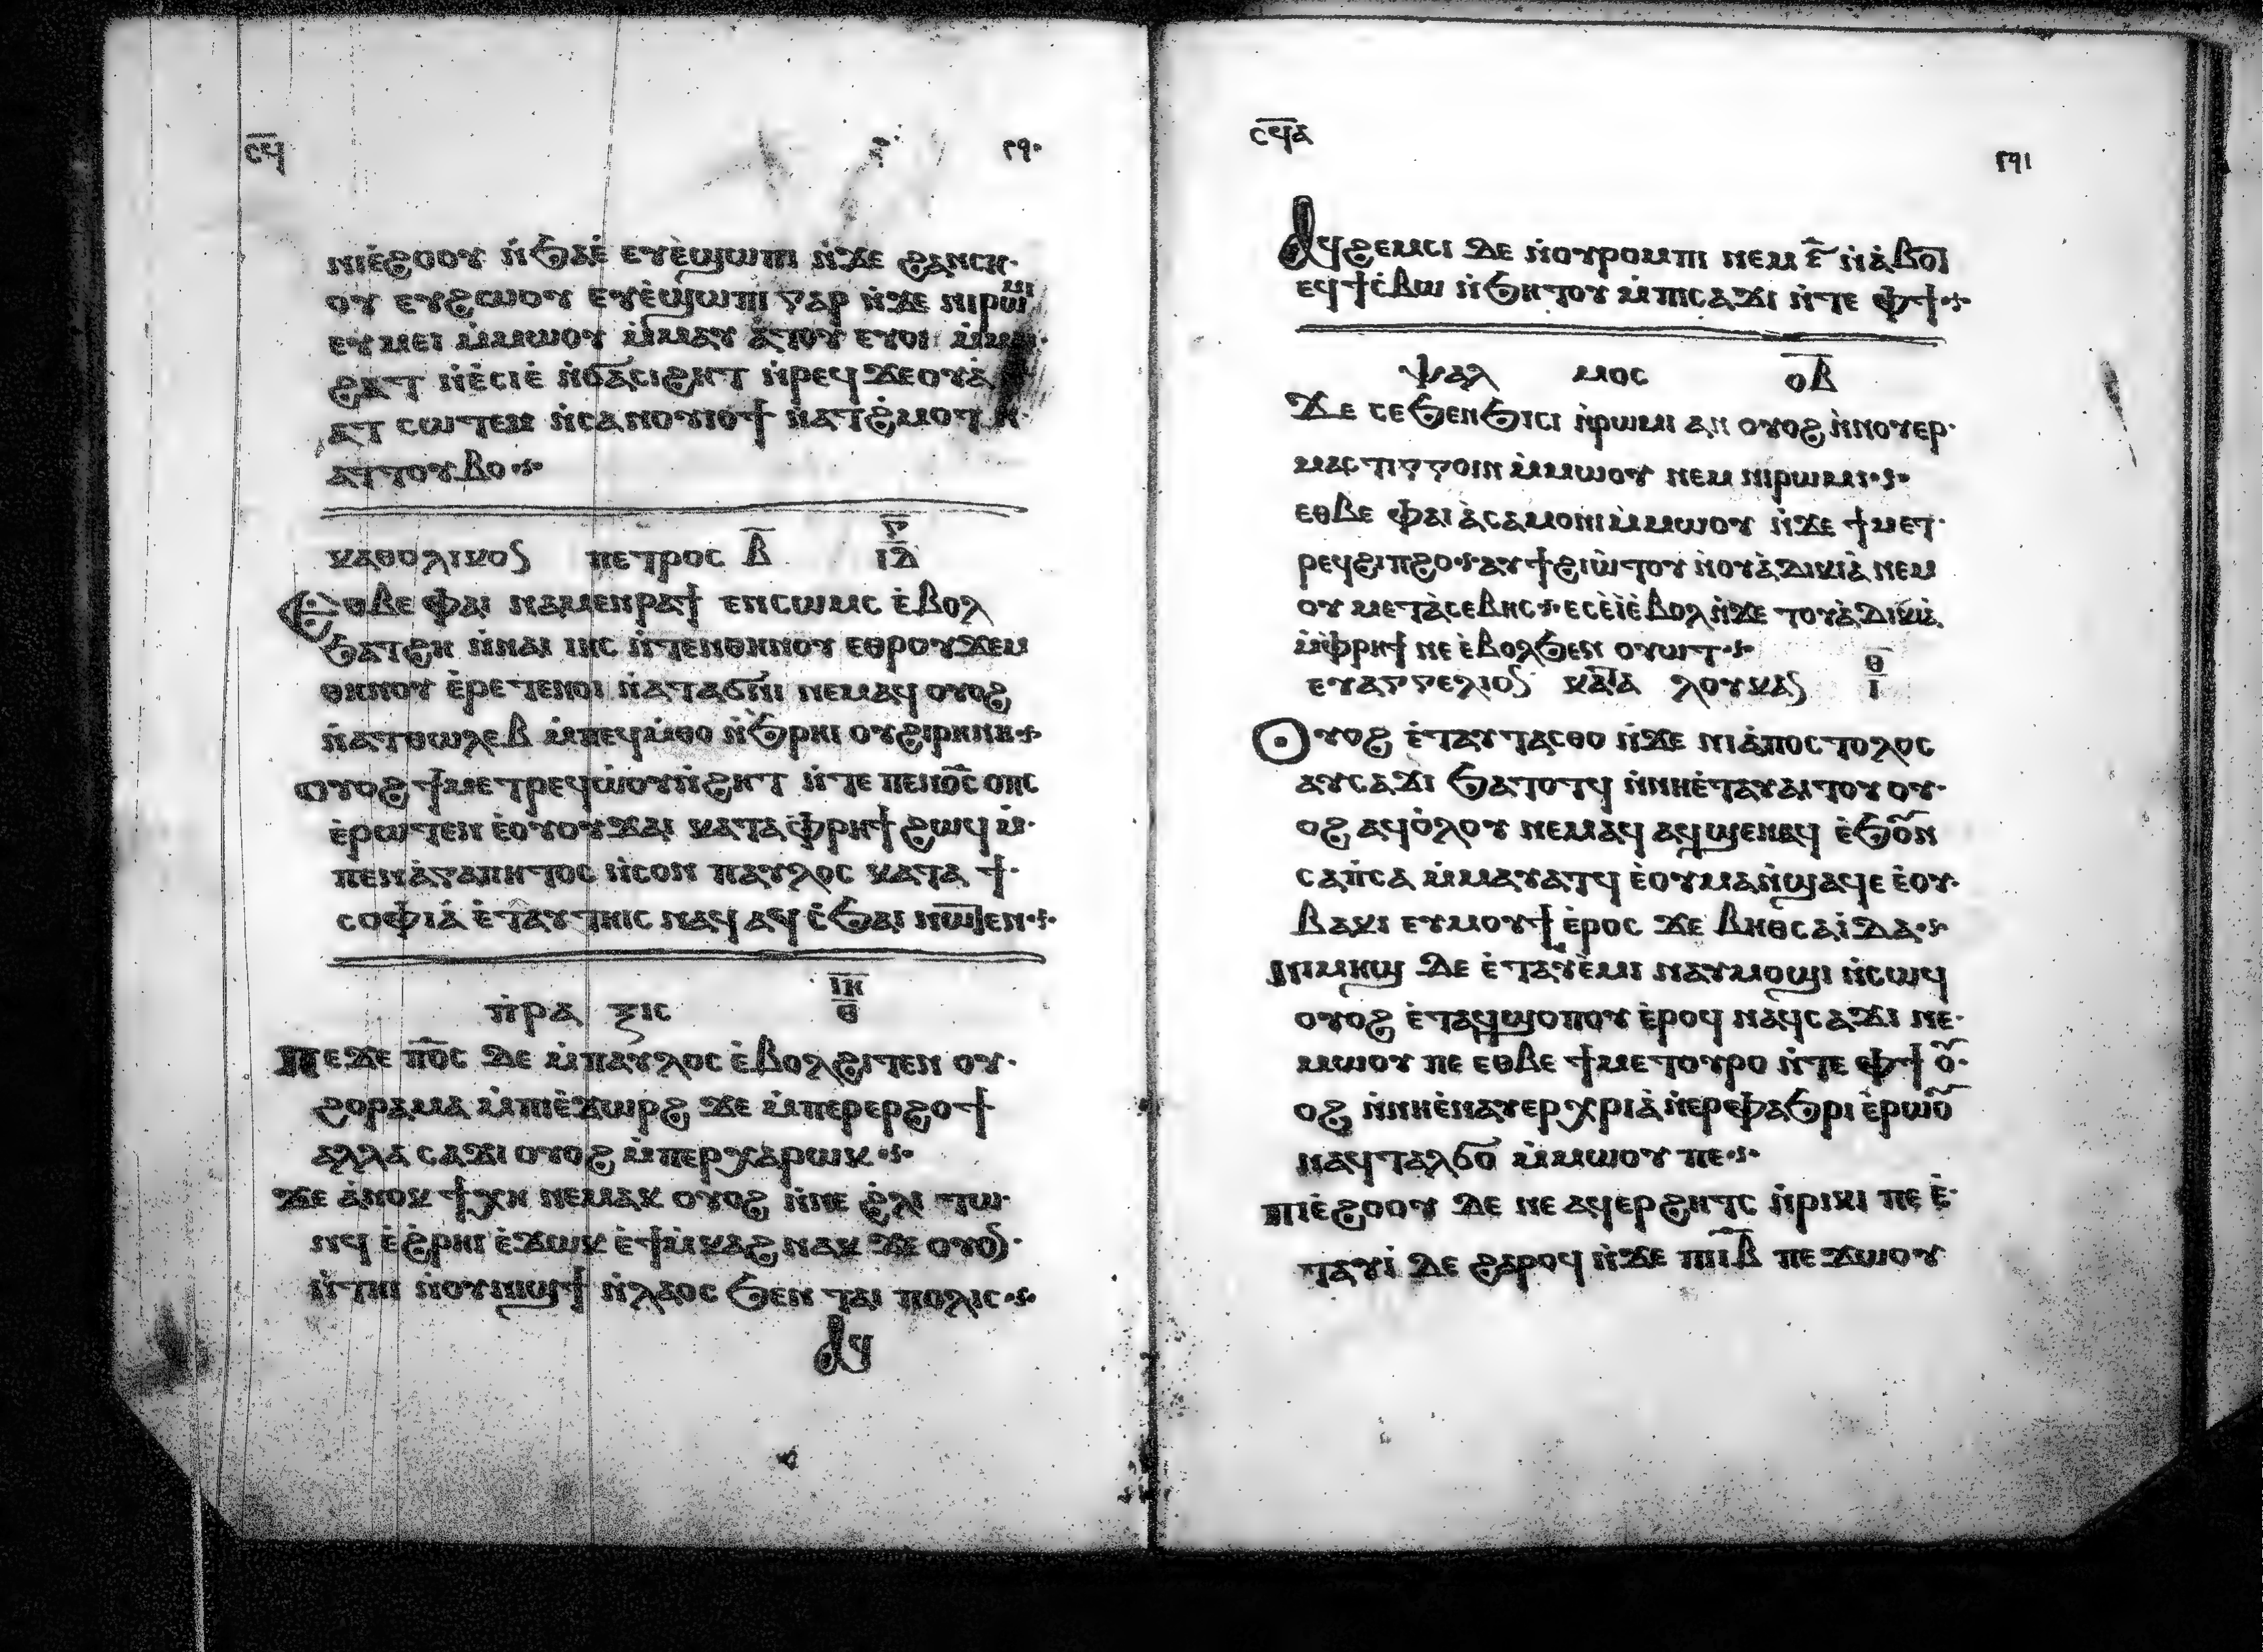 ⲥϥ̅ ٢٩٠
ⲛⲓⲉ̀ϩⲟⲟⲩ ⲛ̀ϧⲁⲉ̀ ⲉⲩⲉ̀ϣⲱⲡⲓ ⲛ̀ϫⲉ ϩⲁⲛⲥⲏ·
ⲟⲩ ⲉⲩϩⲱⲟⲩ ⲉⲩⲉ̀ϣⲱⲡⲓ ⲅⲁⲣ ⲛ̀ϫⲉ ⲛⲓⲣⲱⲙⲓ
ⲉⲩⲙⲉⲓ ⲙ̀ⲙⲱⲟⲩ ⲙ̀ⲙⲁⲩ ⲁⲧⲟⲩ ⲉⲩⲟⲓ ⲙ̀ⲙⲁⲓ·
ϩⲁⲧ ⲛ̀ⲉ̀ⲥⲓⲉ̀ ⲛ̀ϭⲁⲥⲓϩⲏⲧ ⲛ̀ⲣⲉϥϫⲉⲟⲩⲁ̀
ⲁⲧ ⲥⲱⲧⲉⲙ ⲛ̀ⲥⲁⲛⲟⲩⲓⲟϯ ⲛ̀ⲁⲧϩ̀ⲙⲟⲧ ⲛ̀·
ⲁⲧⲧⲟⲩⲃⲟ
ⲕⲁⲑⲟⲗⲓⲕⲟⲥ ⲡⲉⲧⲣⲟⲥ ⲃ̅ ⲅ̅ ⲓ̅ⲇ̅
Ⲉⲑⲃⲉ ⲫⲁⲓ ⲛⲁⲙⲉⲛⲣⲁϯ ⲧⲉⲛⲥⲱⲙⲥ ⲉ̀ⲃⲟⲗ
ϧⲁⲧϩⲏ ⲛ̀ⲛⲁⲓ ⲓⲏⲥ ⲛ̀ⲧⲉⲛⲑⲏⲛⲟⲩ ⲉⲑⲣⲟⲩϫⲉⲙ
ⲑⲏⲛⲟⲩ ⲉ̀ⲣⲉⲧⲉⲛⲟⲓ ⲛ̀ⲁⲧⲁϭⲛⲓ ⲛⲉⲙⲁϥ ⲟⲩⲟϩ
ⲛ̀ⲁⲧⲑⲱⲗⲉⲃ ⲙ̀ⲡⲉϥⲙ̀ⲑⲟ ⲛ̀ϧ̀ⲣⲏⲓ ⲟⲩϩⲓⲣⲏⲛⲏ
ⲟⲩⲟϩ ϯⲙⲉⲧⲣⲉϥⲱ̀ⲟⲩⲛ̀ϩⲏⲧ ⲛ̀ⲧⲉ ⲡⲉⲛⲟ̅ⲥ̅ ⲟⲡⲥ
ⲉ̀ⲣⲱⲧⲉⲛ ⲉ̀ⲟⲩⲟⲩϫⲁⲓ ⲕⲁⲧⲁ ⲫ̀ⲣⲏϯ ϩⲱϥ ⲙ̀·
ⲡⲉⲛⲁ̀ⲅⲁⲡⲏⲧⲟⲥ ⲛ̀ⲥⲟⲛ ⲡⲁⲩⲗⲟⲥ ⲕⲁⲧⲁ ϯ·
ⲥⲟⲫⲓⲁ̀ ⲉ̀ⲧⲁⲩⲧⲏⲓⲥ ⲛⲁϥ ⲁϥⲥ̀ϧⲁⲓ ⲛⲱⲧⲉⲛ
ⲡ̀ⲣⲁ ⲝⲓⲥ ⲓ̅ⲏ̅ ⲑ̅
Ⲡⲉϫⲉ ⲡ̅ⲟ̅ⲥ̅ ⲇⲉ ⲙ̀ⲡⲁⲩⲗⲟⲥ ⲉ̀ⲃⲟⲗϩⲓⲧⲉⲛ ⲟⲩ·
ϩⲟⲣⲁⲙⲁ ⲙ̀ⲡⲓⲉ̀ϫⲱⲣϩ ϫⲉ ⲙ̀ⲡⲉⲣⲉⲣϩⲟϯ
ⲁⲗⲗⲁ ⲥⲁϫⲓ ⲟⲩⲟϩ ⲙ̀ⲡⲉⲣⲭⲁⲣⲱⲕ
ϫⲉ ⲁ̀ⲛⲟⲕ ϯⲭⲏ ⲛⲉⲙⲁⲕ ⲟⲩⲟϩ ⲛ̀ⲛⲉ ϩ̀ⲗⲓ ⲧⲱ·
ⲛϥ ⲉ̀ϩ̀ⲣⲏⲓ ⲉ̀ϫⲱⲕ ⲉ̀ϯⲙ̀ⲕⲁϩ ⲛⲁⲕ ϫⲉ ⲟⲩⲟ·
ⲛ̀ⲧⲏⲓ ⲛ̀ⲟⲩⲛⲓϣϯ ⲛ̀ⲗⲁⲟⲥ ϧⲉⲛ ⲧⲁⲓ ⲡⲟⲗⲓⲥ
ⲁϥ
ⲥϥ̅ⲁ ٢٩١
Ⲁϥϩⲉⲙⲥⲓ ⲇⲉ ⲛ̀ⲟⲩⲣⲟⲙⲡⲓ ⲛⲉⲙ ⲋ̅ ⲛ̀ⲁ̀ⲃⲟⲧ
ⲉϥϯⲥ̀ⲃⲱ ⲛ̀ϧⲏⲧⲟⲩ ⲙ̀ⲡⲓⲥⲁϫⲓ ⲛ̀ⲧⲉ ⲫϯ
ⲯⲁⲗ ⲙⲟⲥ ⲟ̅ⲃ̅
Ϫⲉ ⲥⲉϧⲉⲛϧⲓⲥⲓ ⲛ̀ⲣⲱⲙⲓ ⲁⲛ ⲟⲩⲟϩ ⲛ̀ⲛⲟⲩⲉⲣ·
ⲙⲁⲥⲧⲓⲅⲅⲟⲓⲛ ⲙ̀ⲙⲱⲟⲩ ⲛⲉⲙ ⲛⲓⲣⲱⲙⲓ
ⲉⲑⲃⲉ ⲫⲁⲓ ⲁ̀ⲥⲁⲙⲟⲛⲓ ⲙ̀ⲙⲱⲟⲩ ⲛ̀ϫⲉ ϯⲙⲉⲧ·
ⲣⲉϥϩⲓⲡϩⲟ ⲁⲩϯϩⲓⲱ̀ⲧⲟⲩ ⲛ̀ⲟⲩⲁ̀ⲇⲓⲕⲓⲁ̀ ⲛⲉⲙ
ⲟⲩ ⲙⲉⲧⲁ̀ⲥⲉⲃⲏⲥ ⲉⲥⲉ̀ⲓ̀ⲉ̀ⲃⲟⲗ ⲛ̀ϫⲉ ⲧⲟⲩⲁ̀ⲇⲓⲕⲓⲁ̀
ⲙ̀ⲫ̀ⲣⲏϯ ⲛⲉ ⲉ̀ⲃⲟⲗϧⲉⲛ ⲟⲩⲱⲧ
ⲉⲩⲁⲅⲅⲉⲗⲓⲟⲥ ⲕⲁⲧⲁ ⲗⲟⲩⲕⲁⲥ ⲑ̅ ⲓ̅
Ⲟⲩⲟϩ ⲉ̀ⲧⲁⲩⲧⲁⲥⲑⲟ ⲛ̀ϫⲉ ⲛⲓⲁ̀ⲡⲟⲥⲧⲟⲗⲟⲥ
ⲁⲩⲥⲁϫⲓ ϧⲁⲧⲟⲧϥ ⲛ̀ⲛⲏⲉ̀ⲧⲁⲩⲁⲓⲧⲟⲩ ⲟⲩ·
ⲟϩ ⲁϥⲟ̀ⲗⲟⲩ ⲛⲉⲙⲁϥ ⲁϥϣⲉⲛⲁϥ ⲉ̀ϧⲟⲩⲛ
ⲥⲁⲡ̀ⲥⲁ ⲙ̀ⲙⲁⲩⲁⲧϥ ⲉ̀ⲟⲩⲙⲁⲛ̀ϣⲁϥⲉ ⲉ̀ⲟⲩ·
ⲃⲁⲕⲓ ⲉⲩⲙⲟⲩϯ ⲉ̀ⲣⲟⲥ ϫⲉ ⲃⲏⲑⲥⲁⲓ̀ⲇⲁ
ⲛⲓⲙⲏϣ ⲇⲉ ⲉ̀ⲧⲁⲩⲉ̀ⲙⲓ ⲛⲁⲩⲙⲟϣⲓ ⲛ̀ⲥⲱϥ
ⲟⲩⲟϩ ⲉ̀ⲧⲁϥϣⲟⲡⲟⲩ ⲉ̀ⲣⲟϥ ⲛⲁϥⲥⲁϫⲓ ⲛⲉ·
ⲙⲱⲟⲩ ⲡⲉ ⲉⲑⲃⲉ ϯⲙⲉⲧⲟⲩⲣⲟ ⲛ̀ⲧⲉ ⲫϯ ⲟⲩ·
ⲟϩ ⲛ̀ⲛⲏⲉ̀ⲛⲁⲩⲉⲣ ⲭⲣⲓⲁ̀ ⲛ̀ⲉⲣⲫⲁϧⲣⲓ ⲉ̀ⲣⲱⲟⲩ
ⲛⲁϥⲧⲁⲗϭⲟ ⲙ̀ⲙⲱⲟⲩ ⲡⲉ
ⲡⲓⲉ̀ϩⲟⲟⲩ ⲇⲉ ⲛⲉ ⲁϥⲉⲣϩⲏⲧⲥ ⲛ̀ⲣⲓⲕⲓ ⲡⲉ ⲉ̀·
ⲧⲁⲩⲓ̀ ⲇⲉ ϩⲁⲣⲟϥ ⲛ̀ϫⲉ ⲡⲓⲓ̅ⲃ̅ ⲡⲉϫⲱⲟⲩ